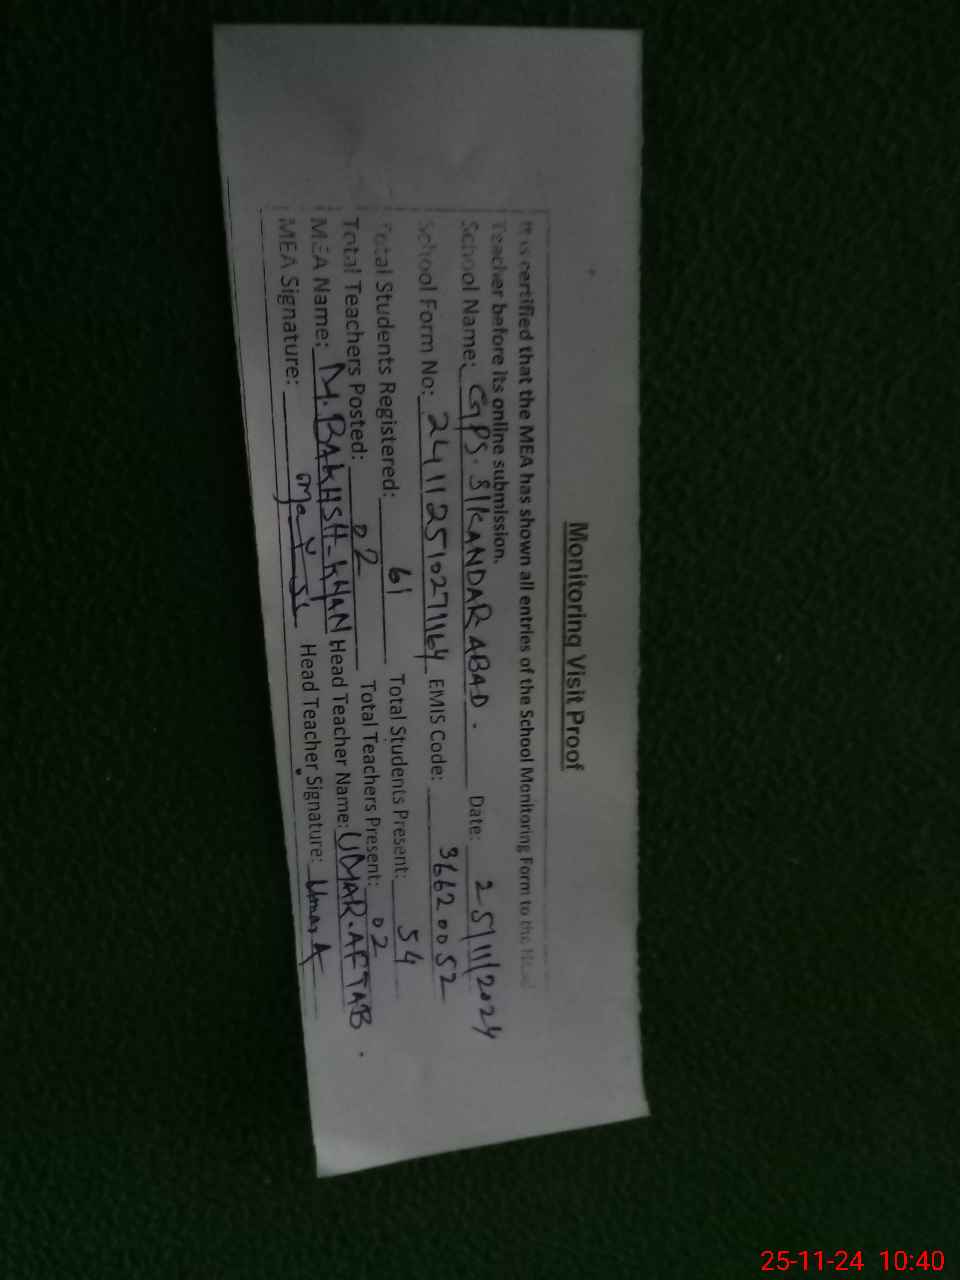 Monitoring Visit Proof
It is certified that the MEA has shown all entries of the School Monitoring Form to the Head
Teacher before its online submission.
School Name: GPS. SIKANDAR ABAD. Date: 25/11/2024
School Form No: 24112510271164 EMIS Code: 36620052
Total Students Registered: 61 Total Students Present: 54
Total Teachers Posted: 02 Total Teachers Present: 02
MEA Name: M. BAKHSH KHAN Head Teacher Name: UMAR. AFTAB.
MEA Signature: Head Teacher Signature: Umar A
25-11-24 10:40